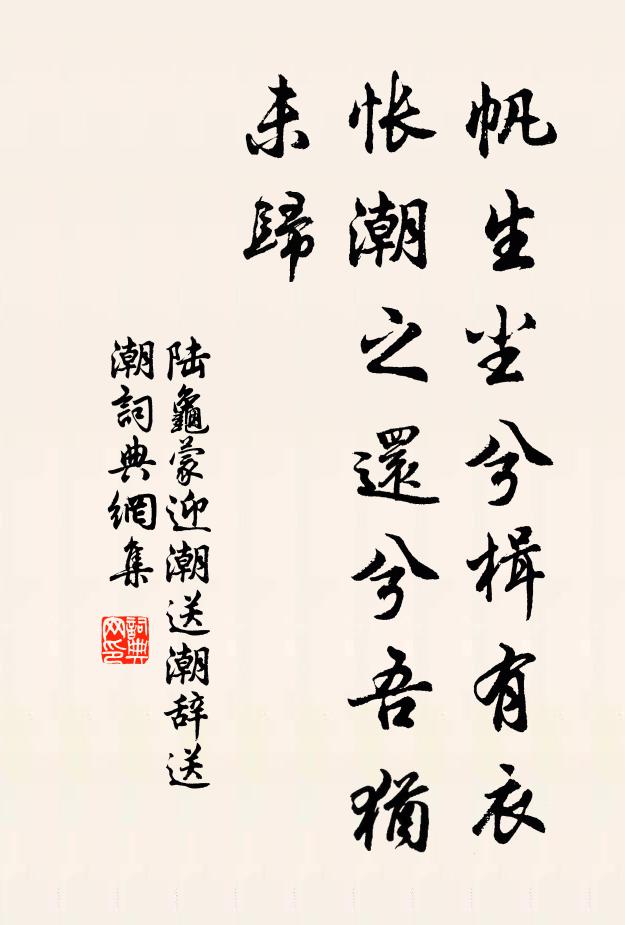 帆生尘兮楫有衣
怅潮之還兮吾猶
未歸
陆龜蒙迎潮送潮辞送
潮詞典網集
詞典
网印